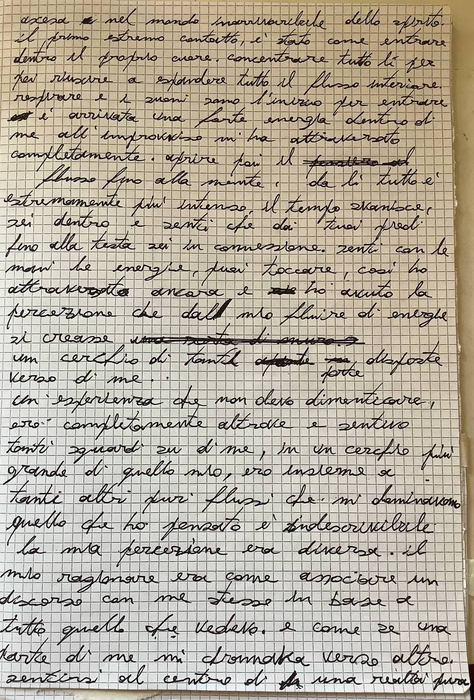 ascesa nel mondo inarrivabile dello spirito.
il primo estremo contatto, è stato come entrare
dentro il proprio cuore. concentrare tutto lì per
poi riuscire a espandere tutto il flusso interiore.
respirare e i suoni sono l'inizio per entrare
è arrivata una forte energia dentro di
me all'improvviso mi ha attraversato
completamente. aprire poi il
flusso fino alla mente. da lì tutto è
estremamente più intenso, il tempo svanisce,
sei dentro e senti che dai tuoi piedi
fino alla testa sei in connessione. senti con le
mani le energie, puoi toccare, così ho
attraversato ancora e ho avuto la
percezione che dall mio fluire di energie
si creasse una sorta di muro
un cerchio di tante porte disposte
verso di me..
un'esperienza che non devo dimenticare,
ero completamente altrove e sentivo
tanti sguardi su di me, in un cerchio più
grande di quello mio, ero insieme a
tanti altri puri flussi che mi dominavano
quello che ho pensato è indescrivibile
la mia percezione era diversa. il
mio ragionare era come associare un
discorso con me stesso in base a
tutto quello che vedevo. e come se una
parte di me mi verso altro.
sentirsi al centro di una realtà pura